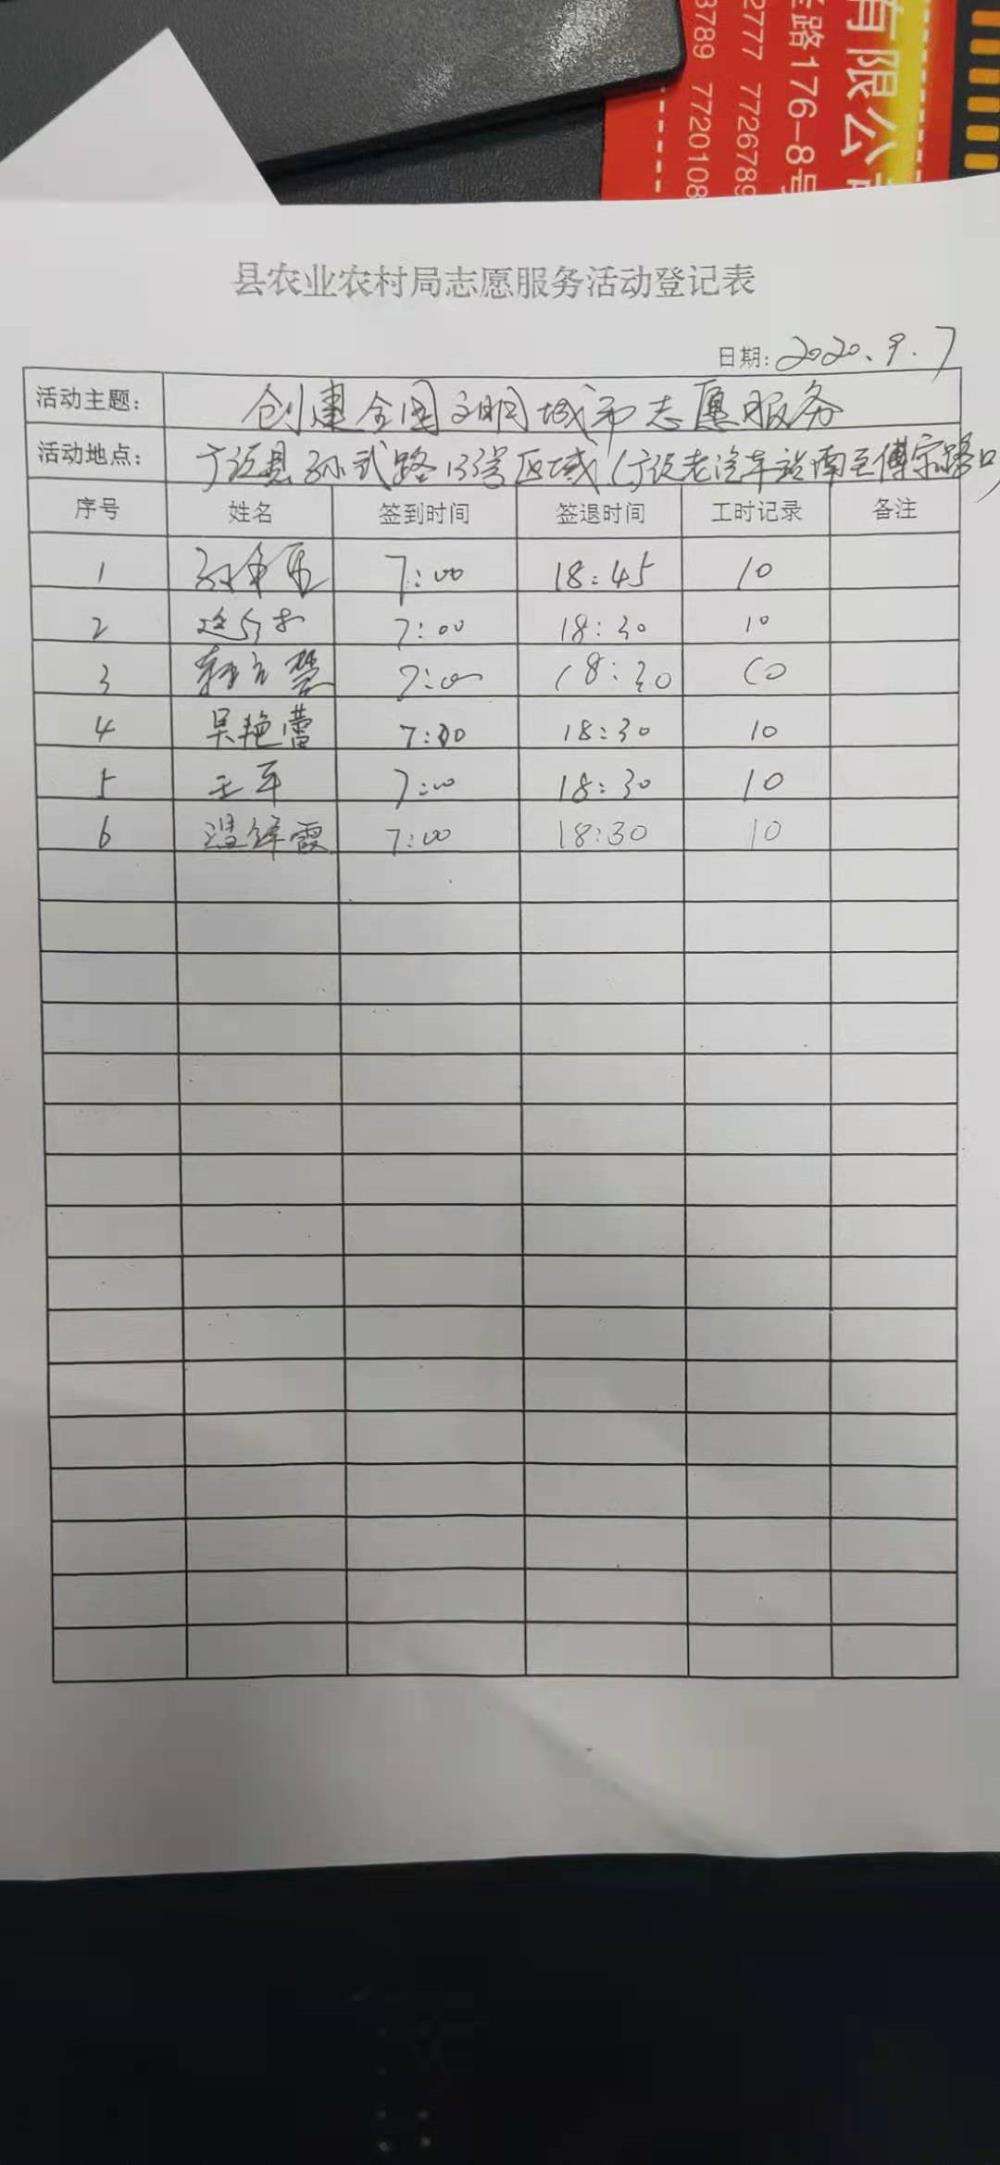 有限公
路176-8号
2777 7726789
3789 7720108
县农业农村局志愿服务活动登记表
日期: 2020.9.7
活动主题: 创建全国文明城市志愿服务
活动地点: 广饶县孙武路13号区域(广饶老汽车站南至傅家路口)
序号 姓名 签到时间 签退时间 工时记录 备注
1 7:00 18:45 10
2 7:00 18:30 10
3 7:00 18:30 10
4 吴艳蕾 7:00 18:30 10
5 王军 7:00 18:30 10
6 霞 7:00 18:30 10